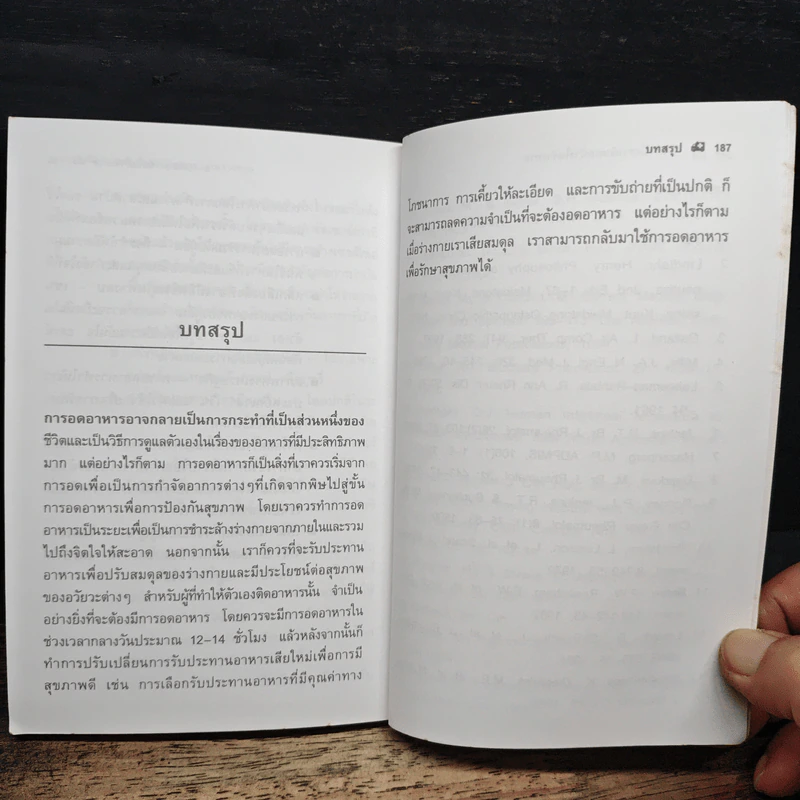 บทสรุป
การอดอาหารอาจกลายเป็นการกระทำที่เป็นส่วนหนึ่งของ
ชีวิตและเป็นวิธีการดูแลตัวเองในเรื่องของอาหารที่มีประสิทธิภาพ
มาก แต่อย่างไรก็ตาม การอดอาหารก็เป็นสิ่งที่เราควรเริ่มจาก
การอดเพื่อเป็นการกำจัดอาการต่างๆที่เกิดจากพิษไปสู่ขั้น
การอดอาหารเพื่อการป้องกันสุขภาพ โดยเราควรทำการอด
อาหารเป็นระยะเพื่อเป็นการชำระล้างร่างกายจากภายในและรวม
ไปถึงจิตใจให้สะอาด นอกจากนั้น เราก็ควรที่จะรับประทาน
อาหารเพื่อปรับสมดุลของร่างกายและมีประโยชน์ต่อสุขภาพ
ของอวัยวะต่างๆ สำหรับผู้ที่ทำให้ตัวเองติดอาหารนั้น จำเป็น
อย่างยิ่งที่จะต้องมีการอดอาหาร โดยควรจะมีการอดอาหารใน
ช่วงเวลากลางวันประมาณ 12–14 ชั่วโมง แล้วหลังจากนั้นก็
ทำการปรับเปลี่ยนการรับประทานอาหารเสียใหม่เพื่อการมี
สุขภาพดี เช่น การเลือกรับประทานอาหารที่มีคุณค่าทาง
บทสรุป 187
โภชนาการ การเคี้ยวให้ละเอียด และการขับถ่ายที่เป็นปกติ ก็
จะสามารถลดความจำเป็นที่จะต้องอดอาหาร แต่อย่างไรก็ตาม
เมื่อร่างกายเราเสียสมดุล เราสามารถกลับมาใช้การอดอาหาร
เพื่อรักษาสุขภาพได้